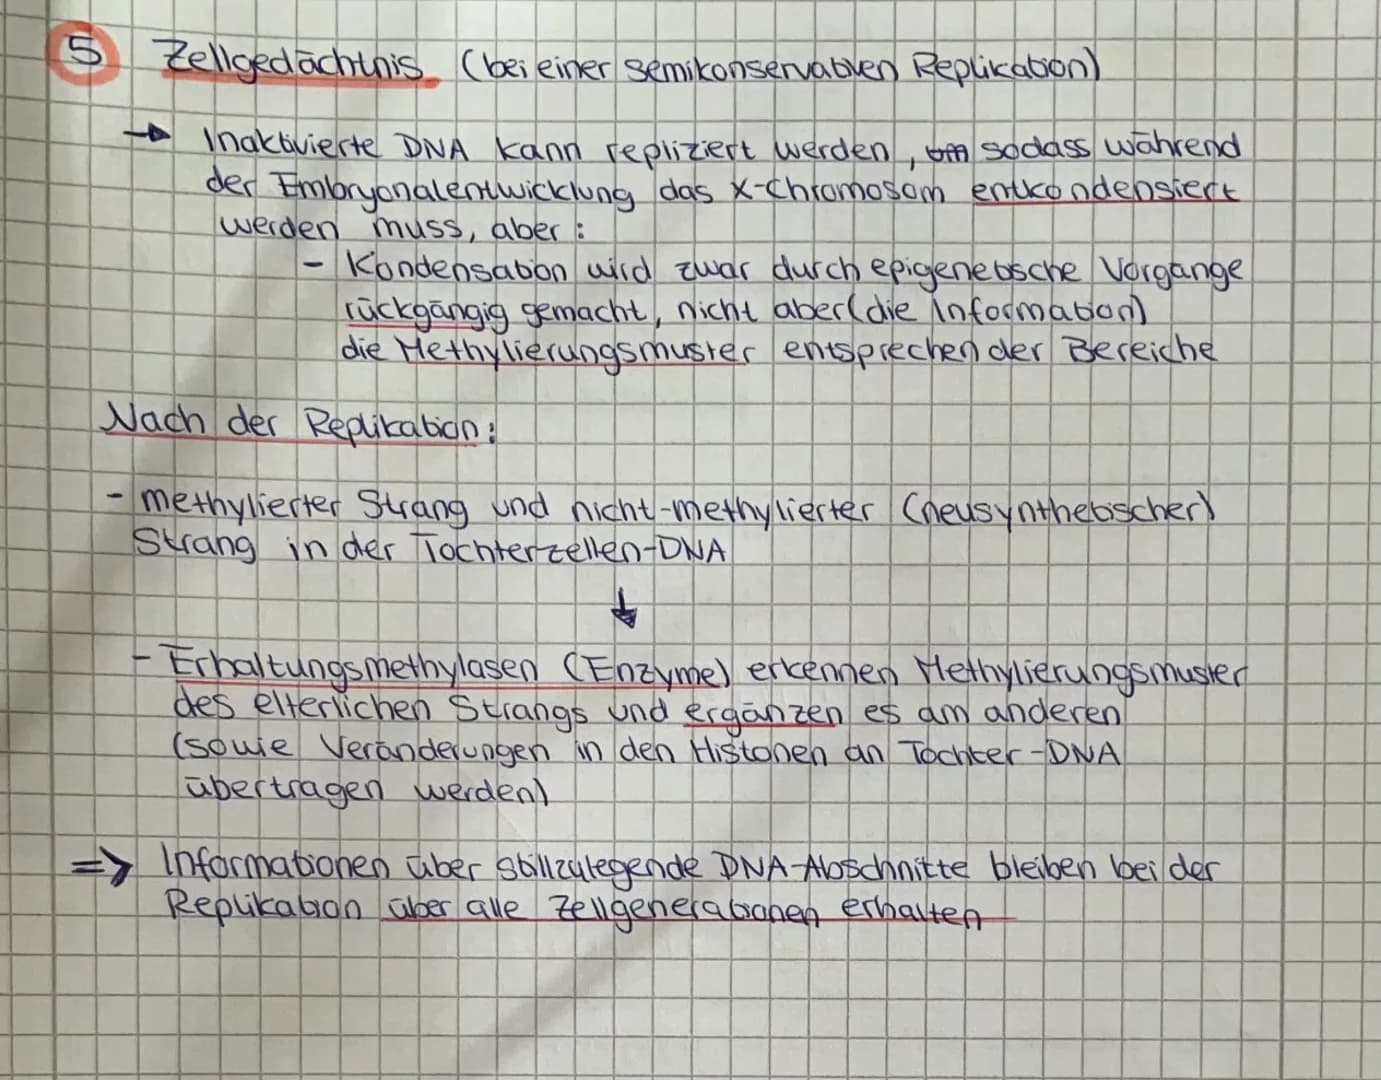 5 Zellgedächtnis (bei einer semikonservativen Replikation)
→ Inaktivierte DNA kann repliziert werden, sodass während
der Embryonalentwicklung das X-Chromosom entkondensiert
werden muss, aber:
- Kondensation wird zwar durch epigenetische Vorgänge
rückgängig gemacht, nicht aber (die Information)
die Methylierungsmuster entsprechender Bereiche
Nach der Replikation:
- methylierter Strang und nicht-methylierter (neusynthetischer)
Strang in der Tochterzellen-DNA
↓
- Erhaltungsmethylasen (Enzyme) erkennen Methylierungsmuster
des elterlichen Strangs und ergänzen es am anderen
(sowie Veränderungen in den Histonen an Tochter-DNA
übertragen werden)
=> Informationen über stillzulegende DNA-Abschnitte bleiben bei der
Replikation über alle Zellgenerationen erhalten